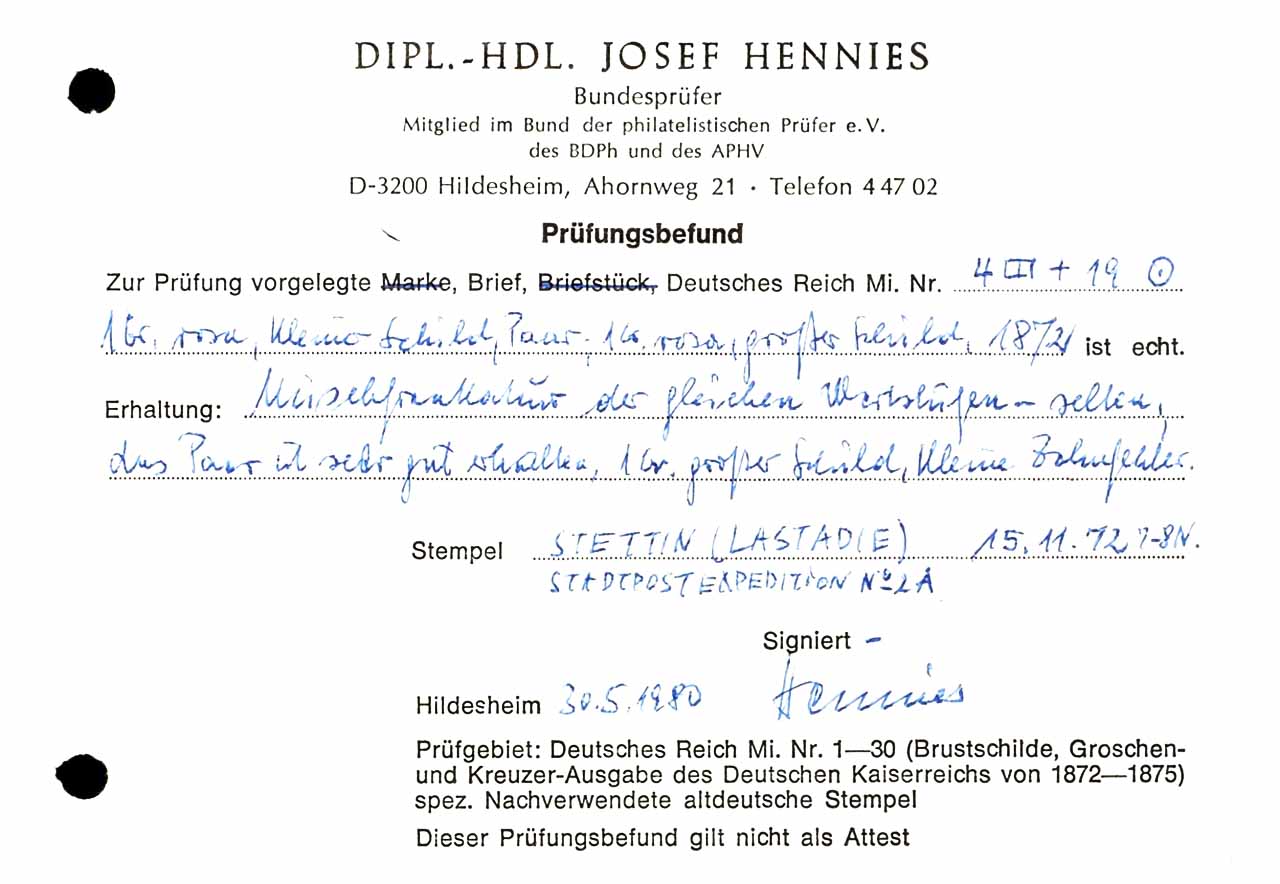 DIPL.-HDL. JOSEF HENNIES
Bundesprüfer
Mitglied im Bund der philatelistischen Prüfer e. V.
des BDPh und des APHV
D-3200 Hildesheim, Ahornweg 21 · Telefon 4 47 02
Prüfungsbefund
Zur Prüfung vorgelegte Marke, Brief, Briefstück, Deutsches Reich Mi. Nr. 4 III + 19 ⊙
1 Gr. rosa, kleiner Schild, Paar, 1 Gr. rosa, großer Schild, 1872 ist echt.
Erhaltung: Mischfrankatur der gleichen Wertstufen – selten,
das Paar ist sehr gut erhalten, 1 Gr. großer Schild, kleine Zahnfehler.
Stempel STETTIN (LASTADIE) 15.11.72 7-8N.
STADTPOSTEXPEDITION No 2 A
Signiert –
Hildesheim 30.5.1980 Hennies
Prüfgebiet: Deutsches Reich Mi. Nr. 1—30 (Brustschilde, Groschen-
und Kreuzer-Ausgabe des Deutschen Kaiserreichs von 1872—1875)
spez. Nachverwendete altdeutsche Stempel
Dieser Prüfungsbefund gilt nicht als Attest